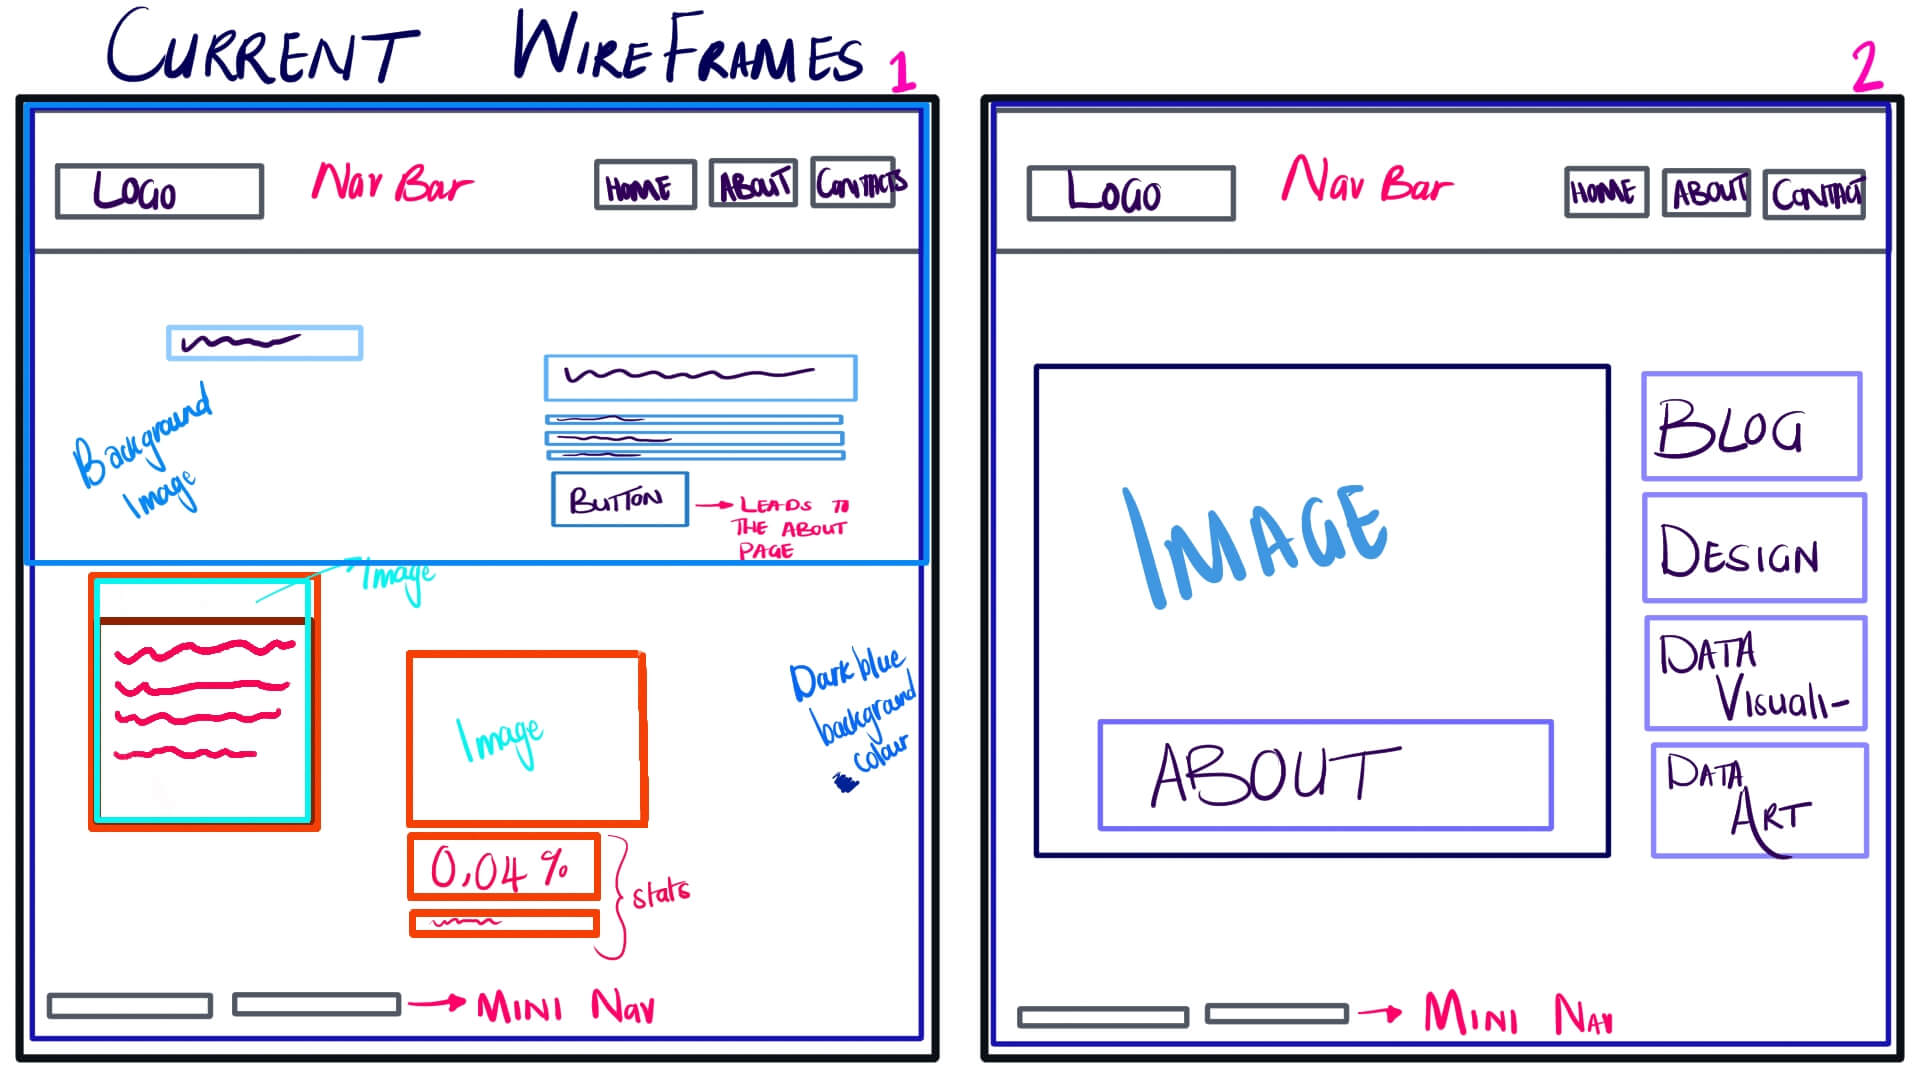 CURRENT WIREFRAMES
1
2
LOGO
Nav Bar
HOME
ABOUT
CONTACTS
Background
Image
BUTTON
LEADS TO
THE ABOUT
PAGE
Image
Image
Dark blue
background
colour
0,04%
stats
MINI NAV
LOGO
Nav Bar
HOME
ABOUT
CONTACT
IMAGE
ABOUT
BLOG
DESIGN
DATA
VISUALI-
DATA
ART
MINI NAV